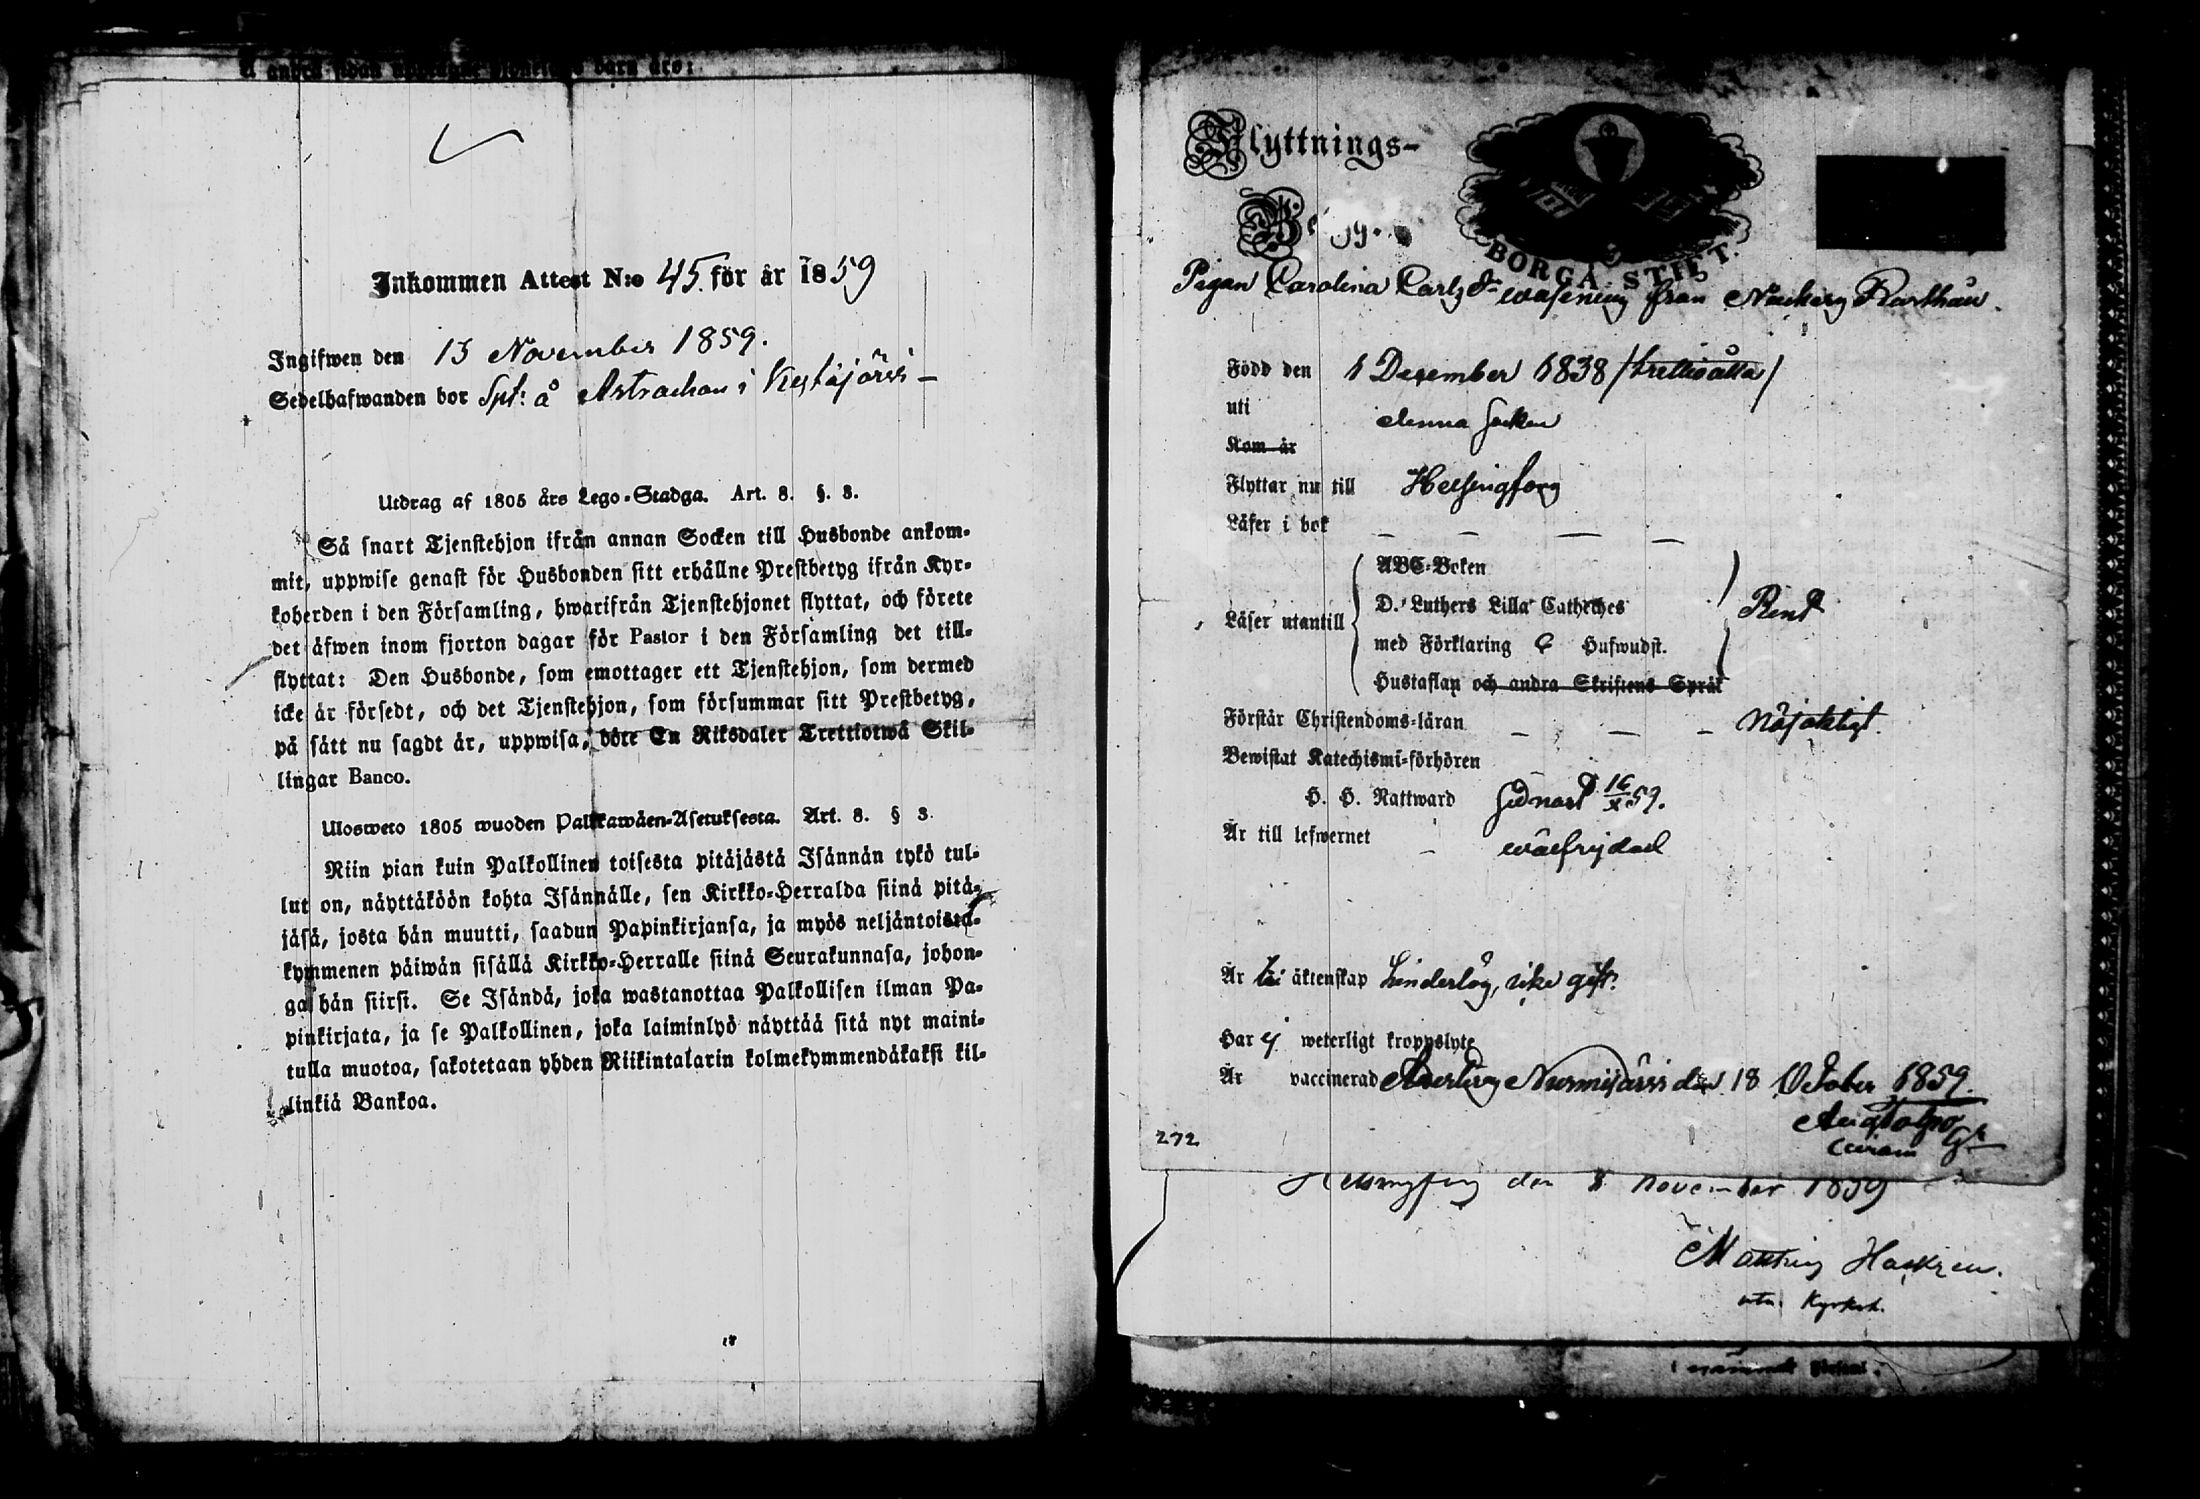 Inkommen Attest N:o 45. för år 1859
Ingifwen den 13 November 1859.
Sedelhafwanden bor Spt: å Astrachan i Kestijärvi –
Utdrag af 1805 års Lego-Stadga. Art. 8. §. 3.
Så snart Tjenstehjon ifrån annan Socken till Husbonde ankom-
mit, uppwise genast för Husbonden sitt erhållne Prestbetyg ifrån Kyr-
koherden i den Församling, hwarifrån Tjenstehjonet flyttat, och förete
det äfwen inom fjorton dagar för Pastor i den Församling det till-
flyttat: Den Husbonde, som emottager ett Tjenstehjon, som dermed
icke är försedt, och det Tjenstehjon, som försummar sitt Prestbetyg,
på sätt nu sagdt är, uppwisa, böte En Riksdaler Trettiotwå Skil-
lingar Banco.
Ulosweto 1805 wuoden Palkkawäen-Asetuksesta. Art. 8. § 3.
Niin pian kuin Palkollinen toisesta pitäjästä Isännän tykö tul-
lut on, näyttäköön kohta Isännälle, sen Kirkko-Herralda siinä pitä-
jäsä, josta hän muutti, saadun Papinkirjansa, ja myös neljäntoista-
kymmenen päiwän sisällä Kirkko-Herralle siinä Seurakunnasa, johon-
ga hän siirsi. Se Isändä, joka wastanottaa Palkollisen ilman Pa-
pinkirjata, ja se Palkollinen, joka laiminlyö näyttää sitä nyt maini-
tulla muotoa, sakotetaan yhden Riikintalarin kolmekymmendäkaksi kil-
linkiä Bankoa.
Flyttnings-
BORGÅ STIFT.
Pigan Carolina Carls dr från Nackby
Född den 1 December 1838 /trettioåtta/
uti denna Socken
Kom år
Flyttar nu till Helsingfors
Läser i bok – – – –
ABC-Boken
Läser utantill D. Luthers Lilla Catheches Rent
med Förklaring Hufwudst.
Hustaflan och andra Skriftens Språk
Förstår Christendoms-läran – – – Nöjaktigt.
Bewistat Katechismi-förhören –
H. H. Nattward sednast d. 16/X 59.
Är till lefwernet – wälfrejdad
Är till äktenskap hinderlös, icke gift.
Har ej weterligt kroppslyte
Är vaccinerad Nurmijärvi den 18 October 1859.
272
Helsingfors den 8 November 1859